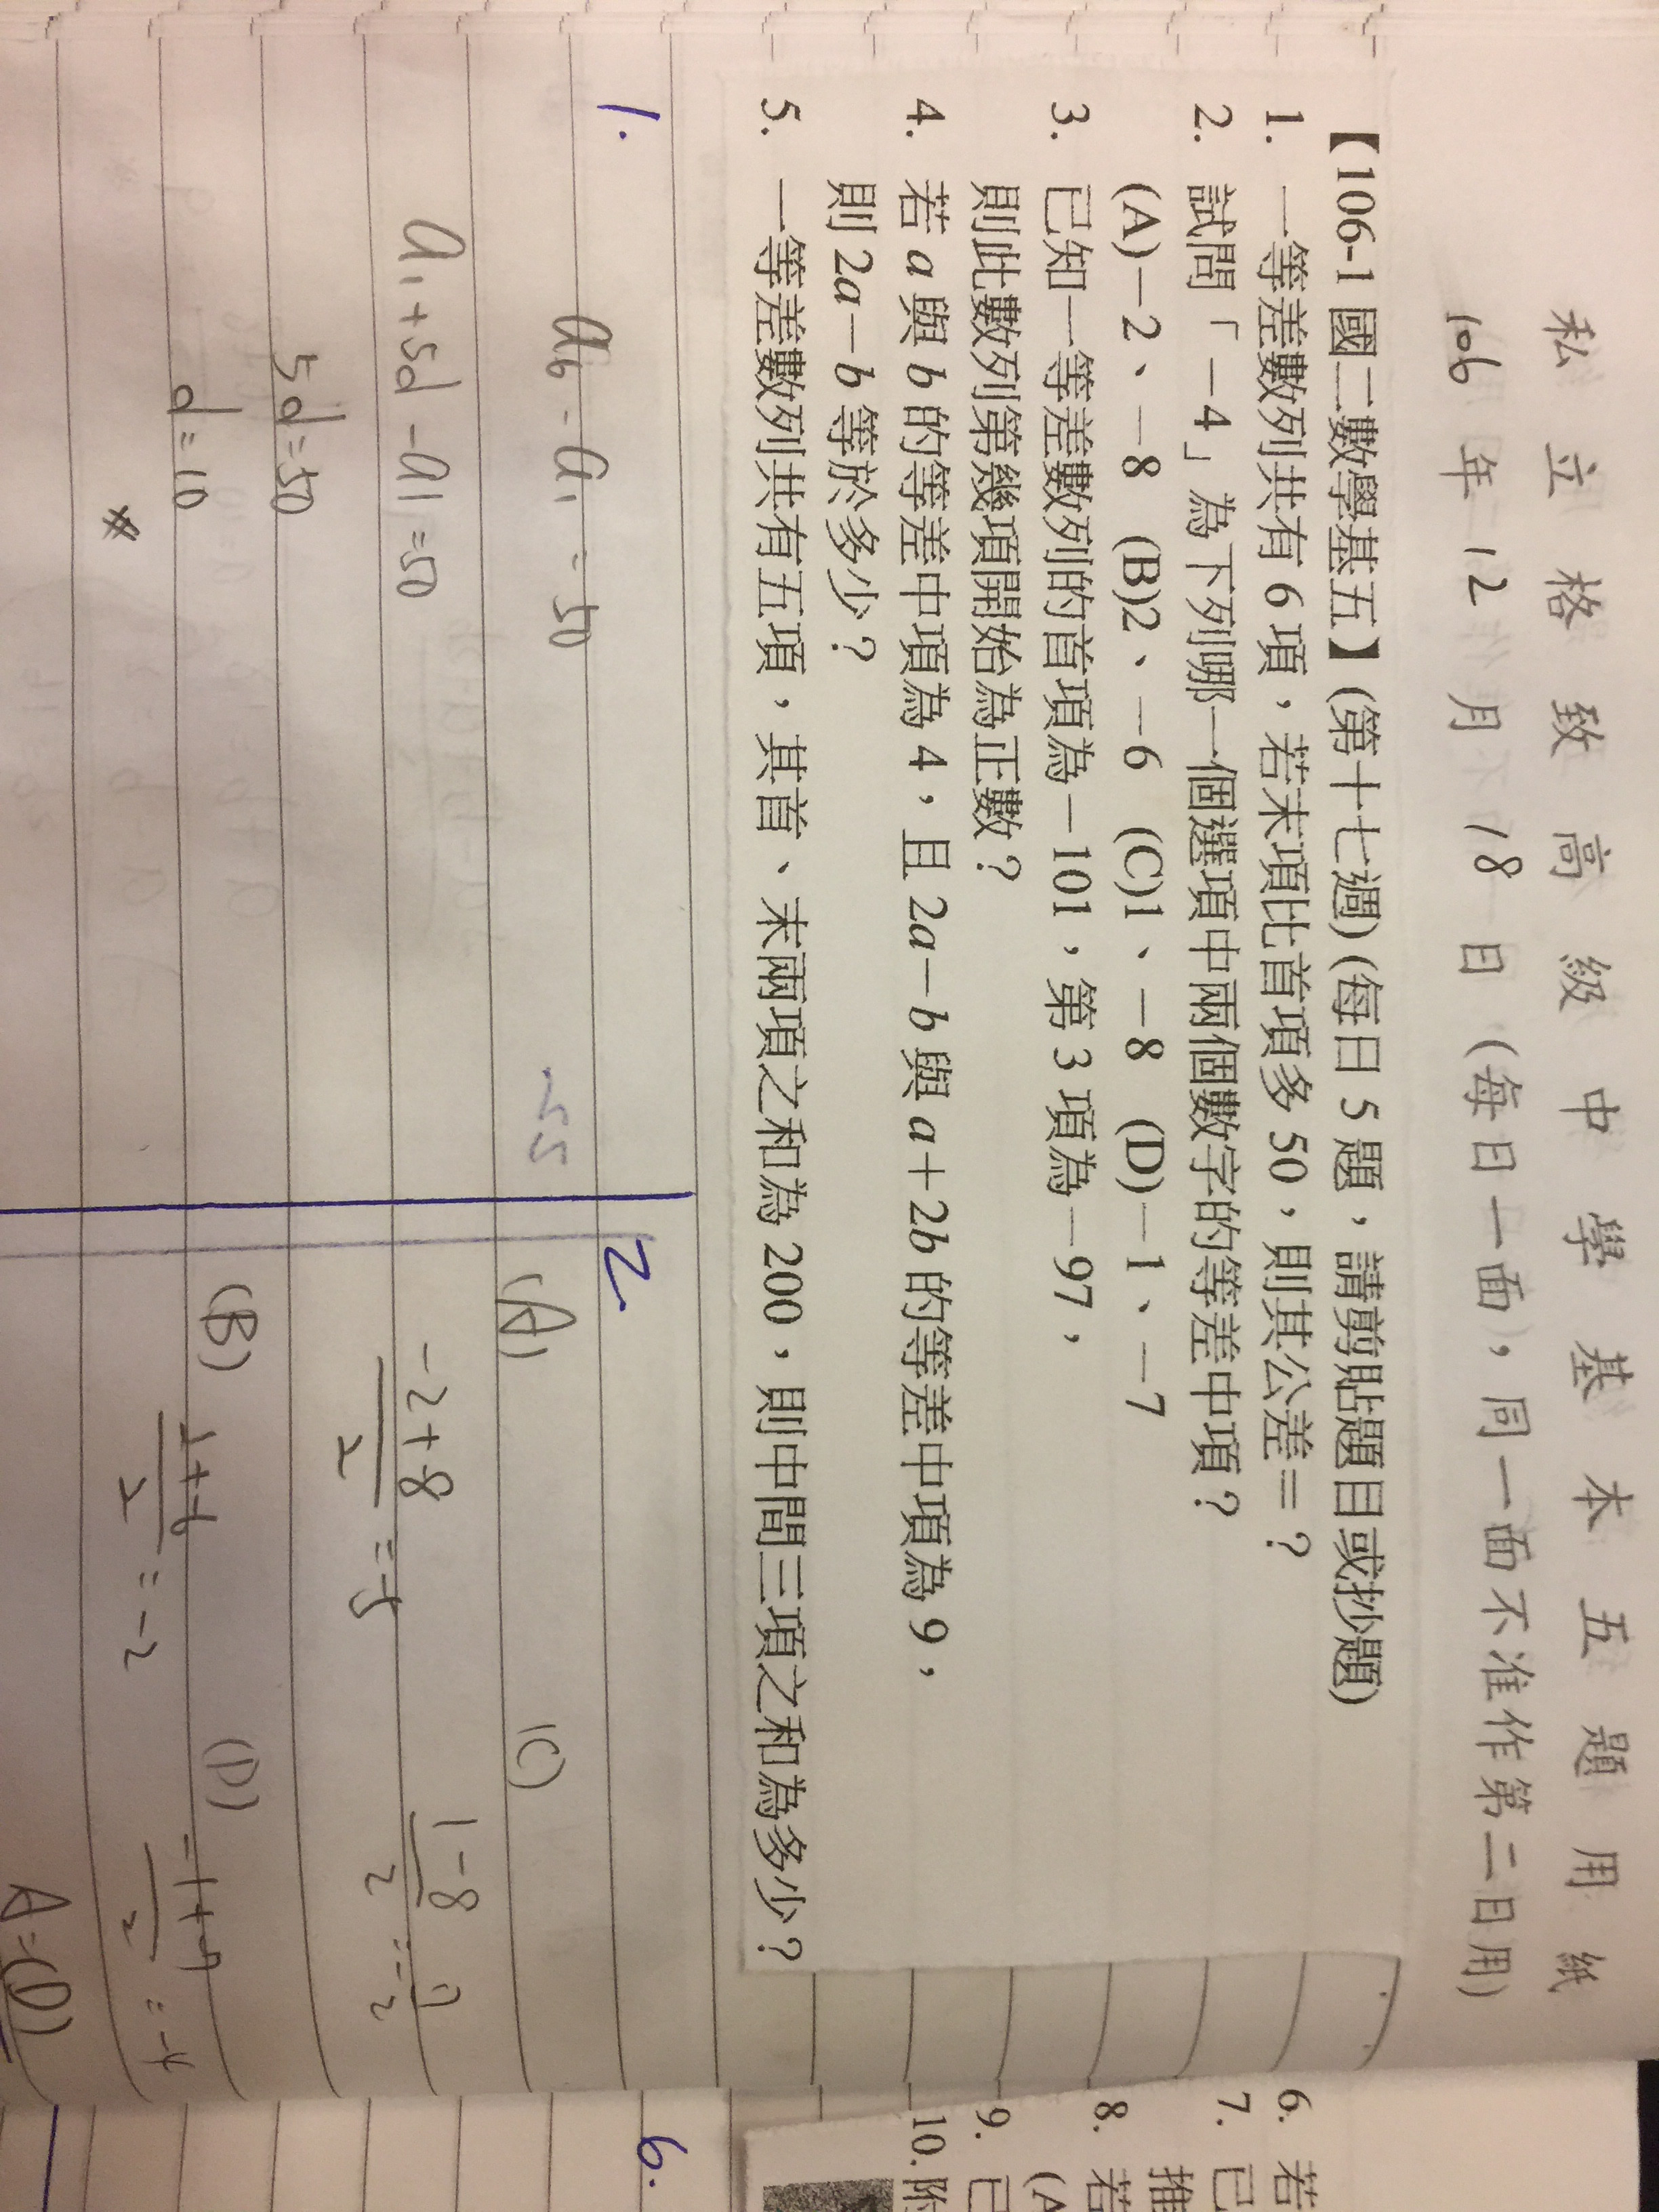 私立格致高級中學基本五題用紙
106年12月18日(每日一面),同一面不准作第二日用)
【106-1 國二數學基五】(第十七週)(每日 5 題,請剪貼題目或抄題)
1. 一等差數列共有 6 項,若末項比首項多 50,則其公差=?
2. 試問「-4」為下列哪一個選項中兩個數字的等差中項?
(A)-2、-8 (B)2、-6 (C)1、-8 (D)-1、-7
3. 已知一等差數列的首項為-101,第 3 項為-97,
則此數列第幾項開始為正數?
4. 若 a 與 b 的等差中項為 4,且 2a-b 與 a+2b 的等差中項為 9,
則 2a-b 等於多少?
5. 一等差數列共有五項,其首、末兩項之和為 200,則中間三項之和為多少?
1.
a6-a1=50
a1+5d-a1=50
5d=50
d=10
2.
(A)
(C)
(B)
(D)
A=(D)
6. 若
7. 已
推
8. 若
(A
9. 已
10. 附
6.